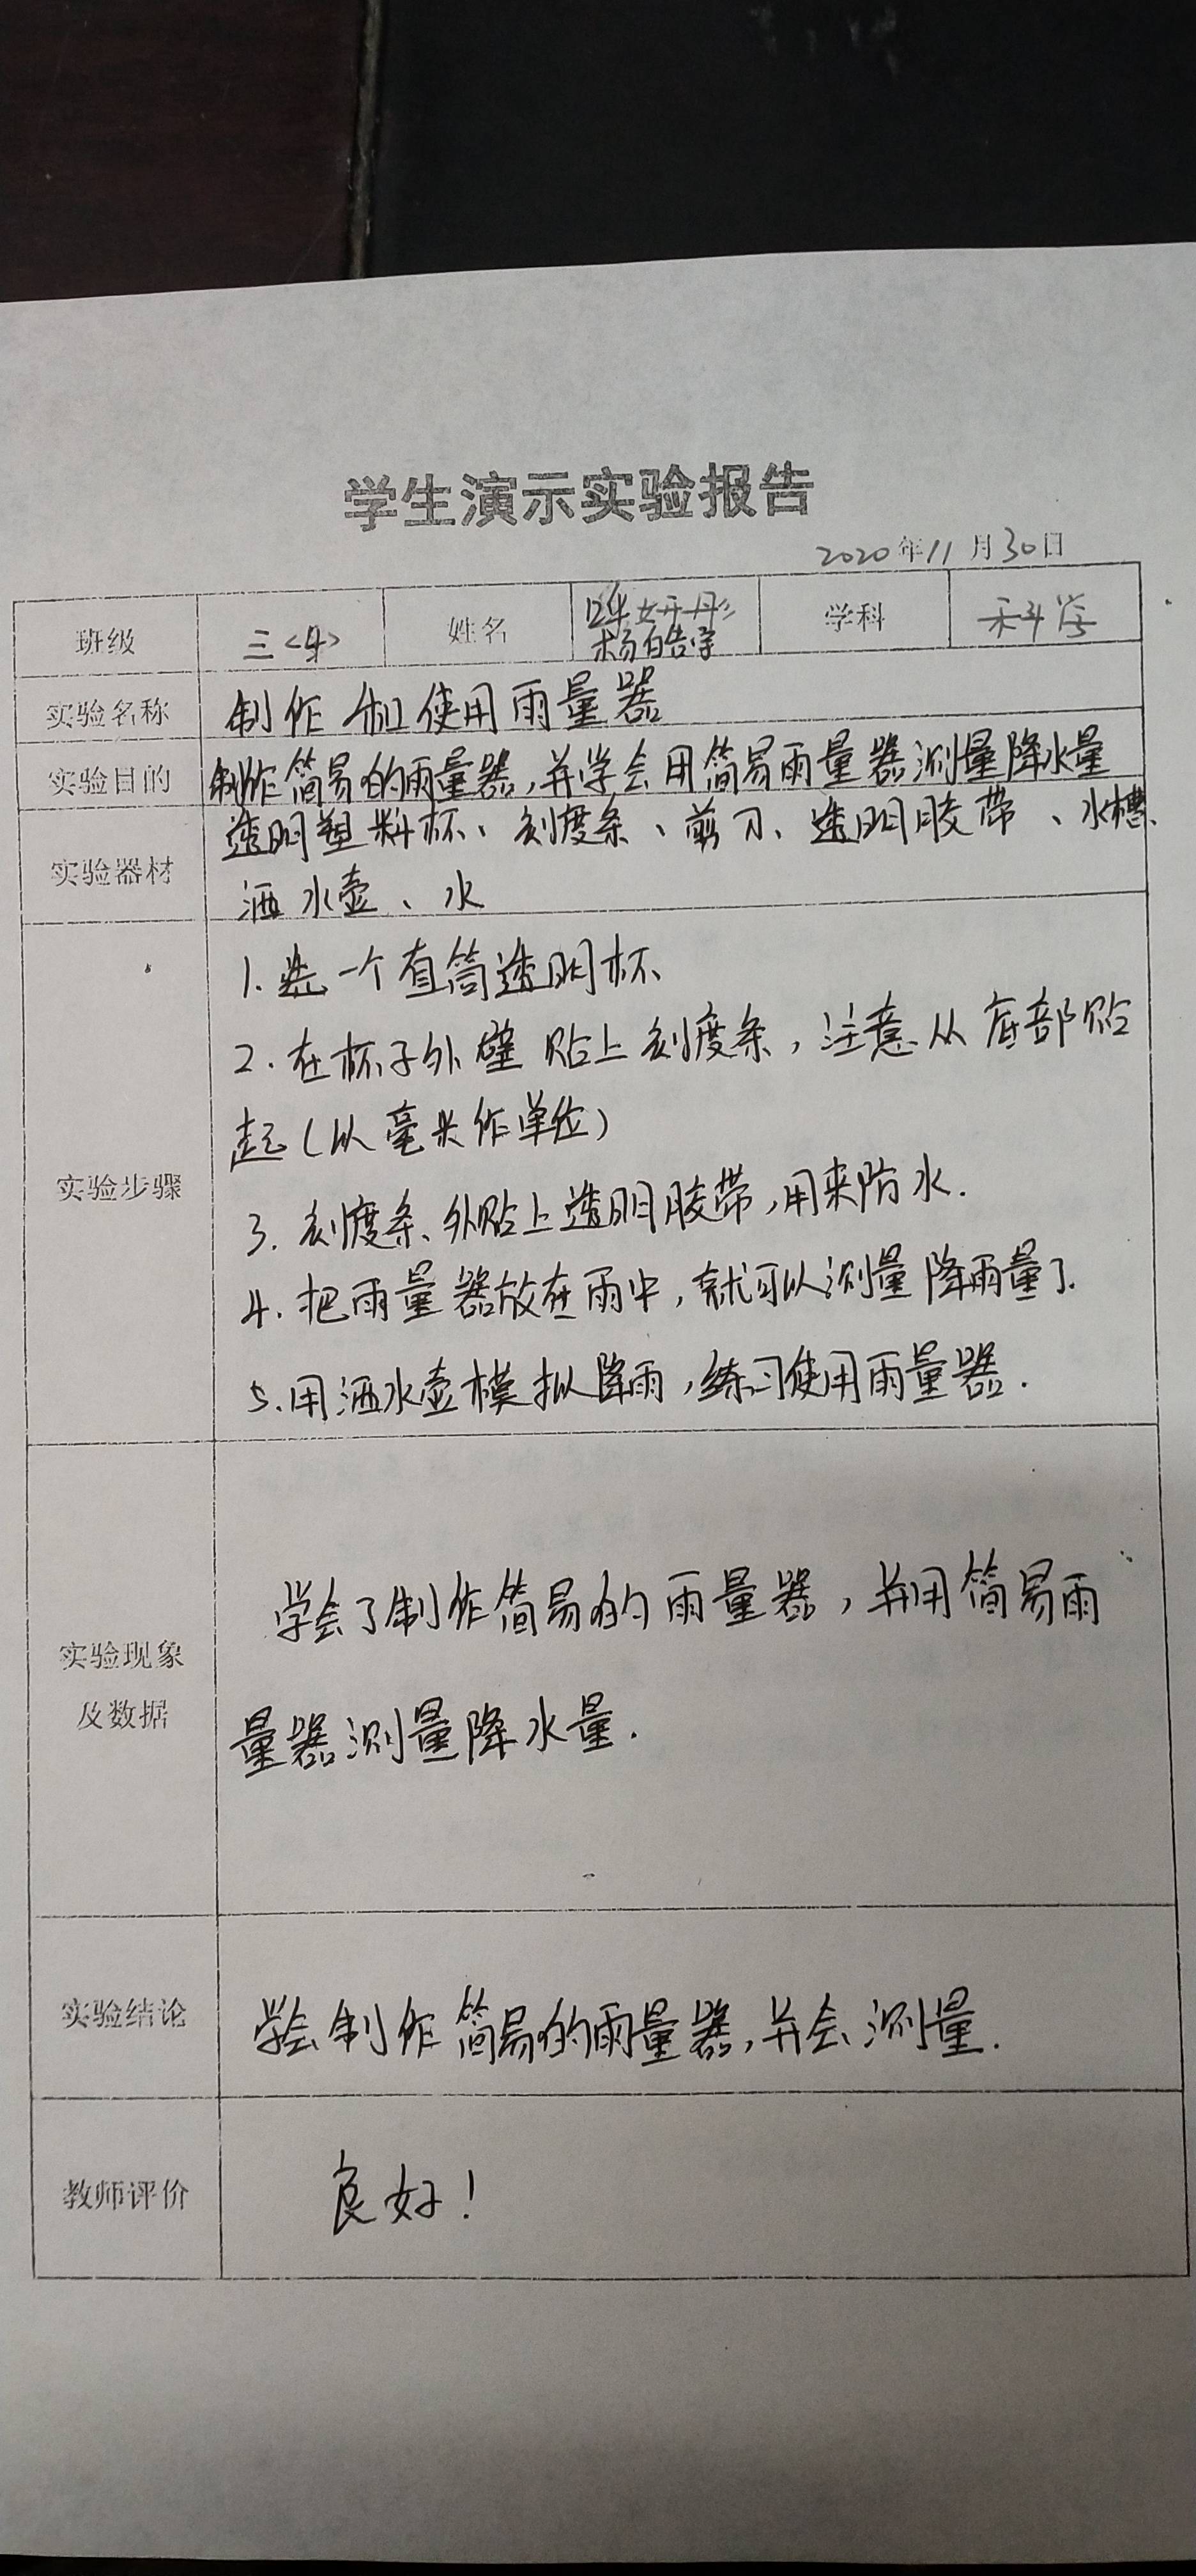 学生演示实验报告
2020年11月30日
班级 三<4> 姓名 学科 科学
杨皓宇
实验名称 制作和使用雨量器
实验目的 制作简易的雨量器,并学会用简易雨量器测量降水量
实验器材 透明塑料杯、刻度条、剪刀、透明胶带、水槽、
洒水壶、水
实验步骤
1.选一个直筒透明杯、
2.在杯子外壁贴上刻度条,注意从底部贴
起(以毫米作单位)
3.刻度条、外贴上透明胶带,用来防水.
4.把雨量器放在雨中,就可以测量降雨量了.
5.用洒水壶模拟降雨,练习使用雨量器.
实验现象
及数据
学会了制作简易的雨量器,并用简易雨
量器测量降水量.
实验结论 学会制作简易的雨量器,并会测量.
教师评价 良好!